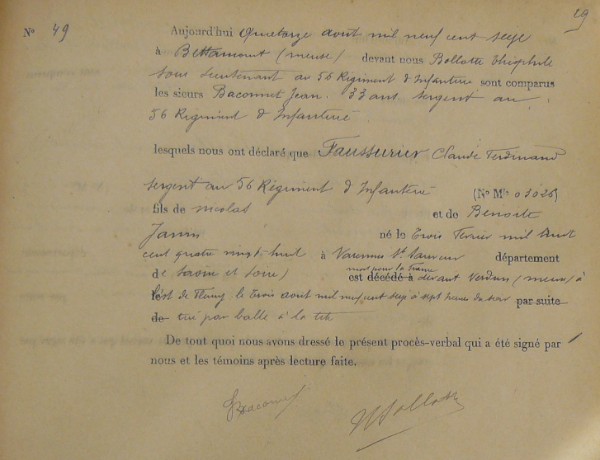 29
N° 49 Aujourd'hui quatorze aout mil neuf cent seize
à Bettancourt (meuse) devant nous Bollotte théophile
sous lieutenant au 56 Régiment d'Infanterie sont comparus
les sieurs Baconnet Jean. 33 ans sergent au
56 Régiment d'Infanterie
lesquels nous ont déclaré que Faussurier Claude Ferdinand
sergent au 56 Régiment d'Infanterie (No Mle 01026)
fils de nicolas et de Benoite
Janin né le trois fevrier mil huit
cent quatre vingt-huit à Varennes St Sauveur département
de Saone et Loire) est décédé à devant Verdun (meuse) à
mort pour la france
l'est de Fleury le trois aout mil neuf cent seize à sept heures du soir par suite
de tué par balle à la tête
De tout quoi nous avons dressé le présent procès-verbal qui a été signé par
nous et les témoins après lecture faite.
Baconnet
Bollotte